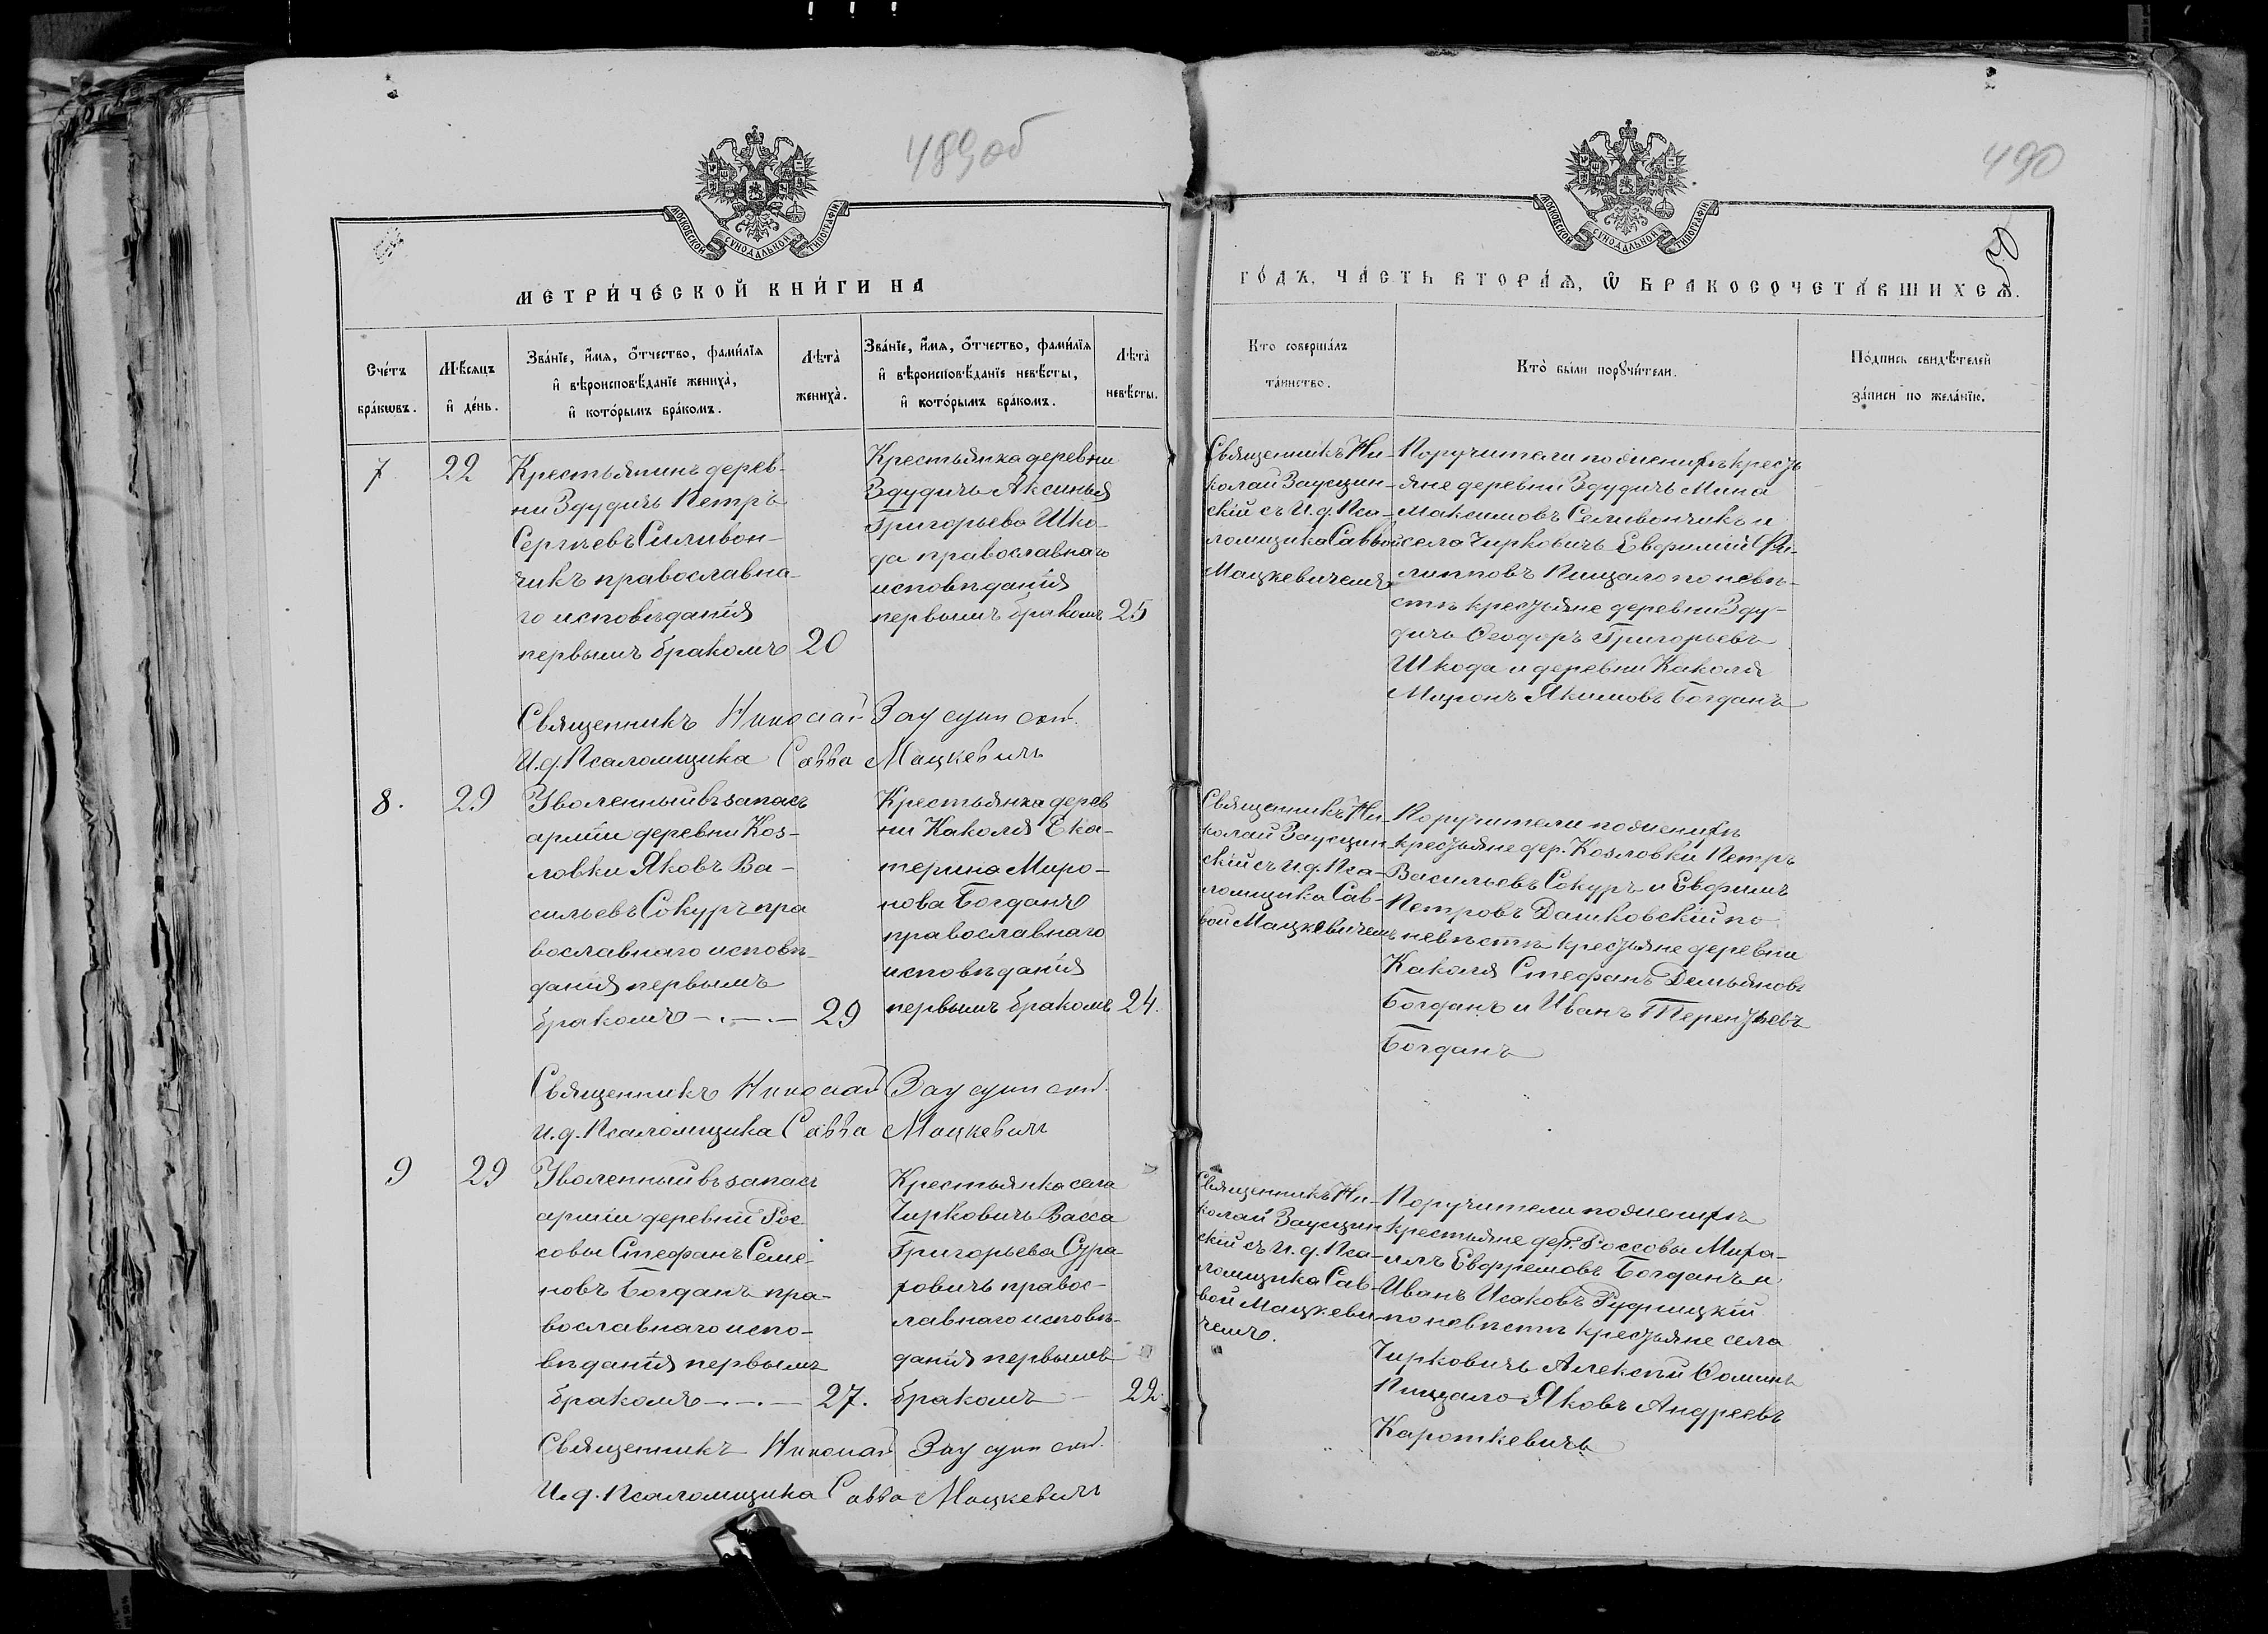 489 об
490
50
МОСКОВСКОЙ СѴНОДАЛЬНОЙ ТИПОГРАФІИ
МОСКОВСКОЙ СѴНОДАЛЬНОЙ ТИПОГРАФІИ
МЕТРИ́ЧЕСКОЙ КНИ́ГИ НА
ГО́ДЪ, ЧА́СТЬ ВТОРА́Ѧ, Ѿ БРАКОСОЧЕТА́ВШИХСѦ.
Сче́тъ
бра́кωвъ.
Мѣ́сяцъ
и де́нь.
Зва́нїе, и́мѧ, о́тчество, фами́лїѧ
и вѣроисповѣ́данїе жениха̀,
и кото́рымъ бра́комъ.
Лѣта̀
жениха̀.
Зва́нїе, и́мѧ, о́тчество, фами́лїѧ
и вѣроисповѣ́данїе невѣ́сты,
и кото́рымъ бра́комъ.
Лѣта̀
невѣ́сты.
Кто соверша́лъ
та́инство.
Кто̀ бы́ли порꙋчи́тели.
По́дпись свидѣ́телей
за́писи по жела́нїю.
7
22
Крестьянинъ дерев-
ни Здудичъ Петръ
Сергѣевъ Силивон-
чикъ православна-
го исповѣданія
первымъ бракомъ 20
Крестьянка деревни
Здудичъ Аксинья
Григорьева Шко-
да православнаго
исповѣданія
первымъ бракомъ 25
Священникъ Ни-
колай Заусцин-
скій съ И. д. Пса-
ломщика Саввой
Мацкевичемъ
Поручители по женихѣ кресть
яне деревни Здудичъ Мина
Максимовъ Селивончикъ и
села Чирковичъ Евфимій Фи-
липповъ Пищало по невѣ-
стѣ крестьяне деревни Зду-
дичъ Ѳеодоръ Григорьевъ
Шкода и деревни Каколя
Миронъ Якимовъ Богданъ
Священникъ Николай Заусцинскій.
И. д. Псаломщика Савва Мацкевичъ
8.
29
Уволенный въ запасъ
арміи деревни Коз-
ловки Яковъ Ва-
сильевъ Сокуръ пра
вославнаго исповѣ-
данія первымъ
бракомъ -.-.- 29
Крестьянка дерев
ни Каколя Ека-
терина Миро-
нова Богданъ
православнаго
исповѣданія
первымъ бракомъ 24.
Священникъ Ни-
колай Заусцин-
скій съ И. д. Пса-
ломщика Сав-
вой Мацкевичемъ
Поручители по женихѣ
крестьяне дер. Козловки Петръ
Васильевъ Сокуръ и Евфимъ
Петровъ Дашковскій по
невѣстѣ крестьяне деревни
Каколя Стефанъ Демьяновъ
Богданъ и Иванъ Терентьевъ
Богданъ
Священникъ Николай Заусцинскій.
И. д. Псаломщика Савва Мацкевичъ
9
29
Уволенный въ запасъ
арміи деревни Рос
совы Стефанъ Семе-
новъ Богданъ пра-
вославнаго испо-
вѣданія первымъ
бракомъ -.-.- 27.
Крестьянка села
Чирковичъ Васса
Григорьева Сура-
ровичъ правос-
лавнаго исповѣ-
данія первымъ
бракомъ - 22.
Священникъ Ни-
колай Заусцин
скій съ И. д. Пса-
ломщика Сав-
вой Мацкеви-
чемъ.
Поручители по женихѣ
крестьяне дер. Россовы Миха-
илъ Евфремовъ Богданъ и
Иванъ Исаковъ Рудницкій
по невѣстѣ крестьяне села
Чирковичъ Алексѣй Ѳоминъ
Пищало Яковъ Андреевъ
Кароткевичъ
Священникъ Николай Заусцинскій.
И. д. Псаломщика Савва Мацкевичъ